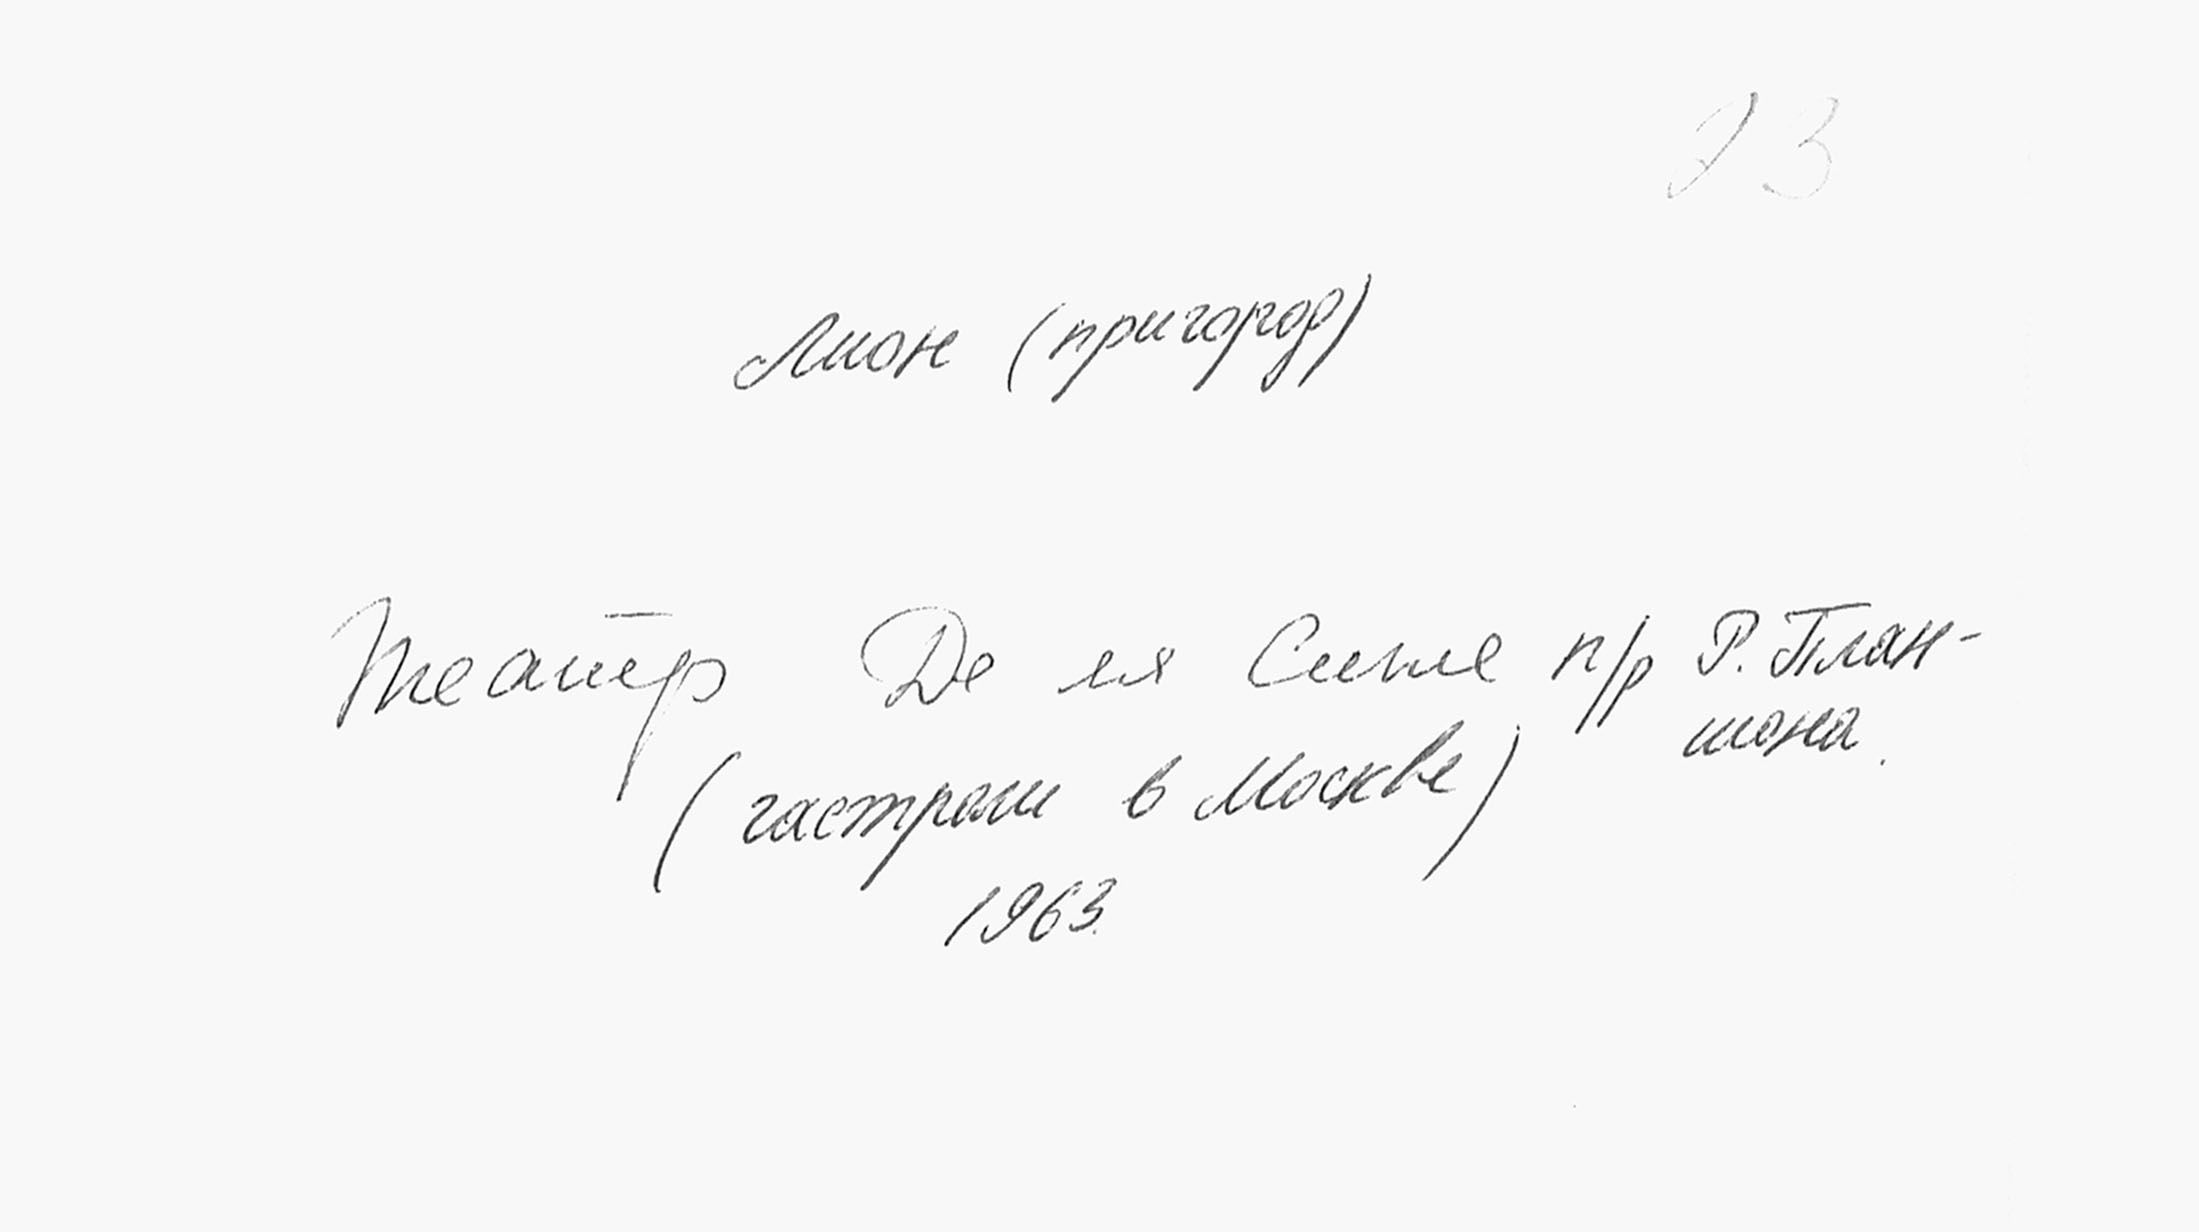 23
Лион (пригород)
Театр Де ля Сите п/р Р. План-
шона.
(гастроли в Москве)
1963.